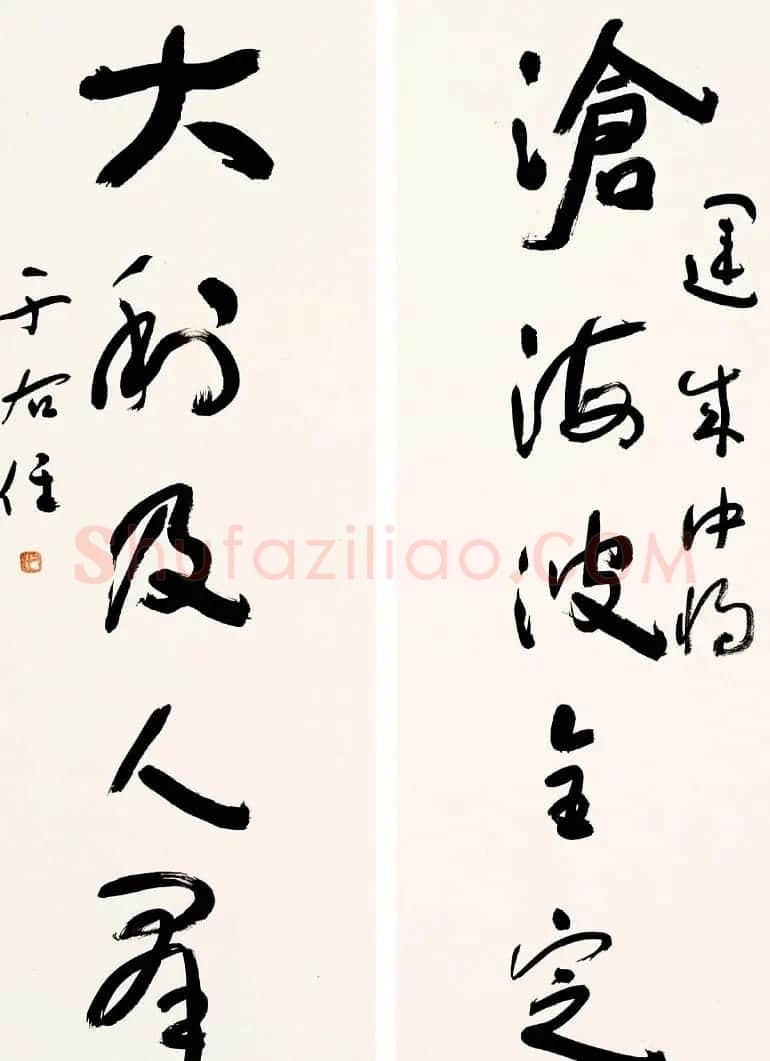 運成中將
滄海波全定
大利及人羣
于右任
Shufaziliao.COM